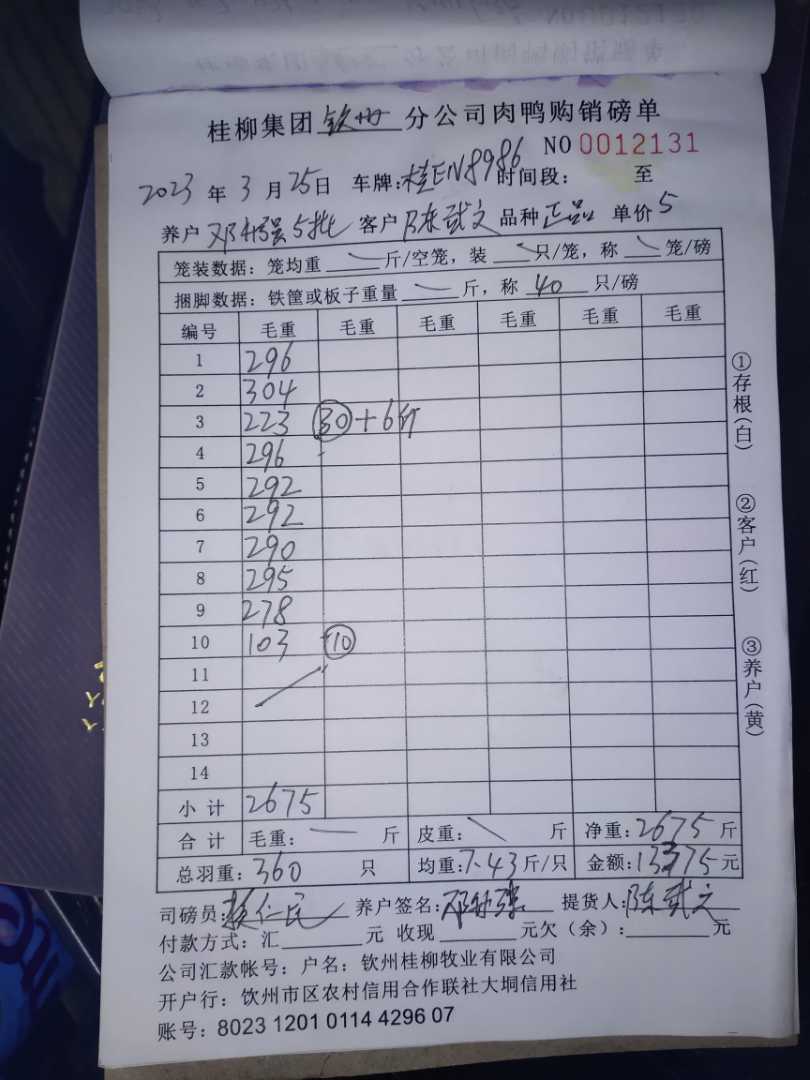 桂柳集团 钦州 分公司肉鸭购销磅单
NO 0012131
2023 年 3 月 25 日 车牌:桂EN8986 时间段: 至
养户 邓 强5批 客户 陈武文 品种 正品 单价 5
笼装数据:笼均重 斤/空笼,装 只/笼,称 笼/磅
捆脚数据:铁筐或板子重量 斤,称 40 只/磅
编号 毛重 毛重 毛重 毛重 毛重 毛重
1 296
2 304
3 223 30 +6斤
4 296
5 292
6 292
7 290
8 295
9 278
10 103 10
11
12
13
14
小 计 2675
合 计 毛重: 斤 皮重: 斤 净重:2675 斤
总羽重:360 只 均重:7.43 斤/只 金额:13375 元
司磅员: 仁民 养户签名:邓 强 提货人:陈武文
付款方式:汇 元 收现 元欠(余): 元
公司汇款帐号:户名:钦州桂柳牧业有限公司
开户行:钦州市区农村信用合作联社大垌信用社
账号:8023 1201 0114 4296 07
①存根(白)
②客户(红)
③养户(黄)